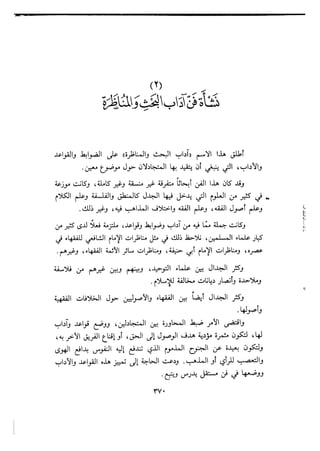 (٢)
نشأة فن آداب البحث والمناظرة
أطلق هذا الاسم (آداب البحث والمناظرة) على الضوابط والقواعد
والآداب، التي ينبغي أن يتقيد بها المتجادلان حول موضوع معين.
وقد كان هذا الفن أبحاثاً متفرقة غير منسقة وغير كاملة، وكانت موزعة
في كثير من العلوم التي يدخل فيها الجدل كالمنطق والفلسفة وعلم الكلام
وعلم أصول الفقه، وعلم الفقه واختلاف المذاهب فيه، وغير ذلك.
وكانت جملة مما فيه من آداب وضوابط وقواعد، ملتزمة فعلاً لدى كثير من
كبار علماء المسلمين، نلاحظ ذلك في مثل مناظرات الإمام الشافعي للفقهاء في
عصره، ومناظرات الإمام أبي حنيفة، ومناظرات سائر الأئمة الفقهاء، وغيرهم.
وكثر الجدال بين علماء التوحيد، وبينهم وبين غيرهم من فلاسفة
وملاحدة وأنصار ديانات مخالفة للإسلام.
وكثر الجدال أيضاً بين الفقهاء والأصوليين حول الخلافات الفقهية
وأصولها.
واقتضى الأمر ضبط المحاورة بين المتجادلين، ووضع قواعد وآداب
لها، لتكون مثمرة مؤدية هدف الوصول إلى الحق، أو إقناع الفريق الآخر به،
ولتكون بعيدة عن الجنوح المذموم الذي تندفع إليه النفوس بدافع الهوى
والتعصب للرأي أو المذهب. ودعت الحاجة إلى تمييز هذه القواعد والآداب
ووضعها في فن مستقل يدرس ويتبع.
٣٧٠